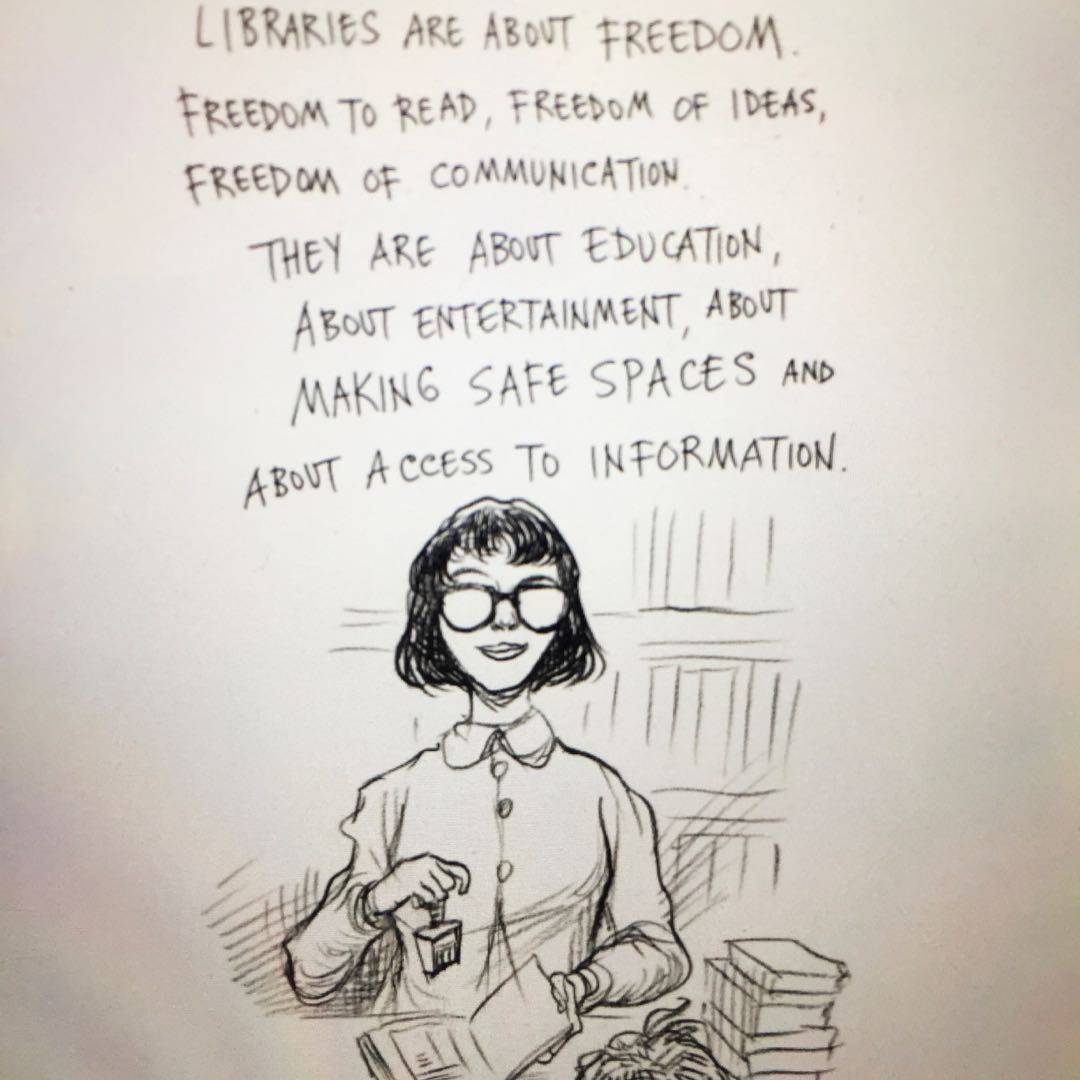 LIBRARIES ARE ABOUT FREEDOM.
FREEDOM TO READ, FREEDOM OF IDEAS,
FREEDOM OF COMMUNICATION.
THEY ARE ABOUT EDUCATION,
ABOUT ENTERTAINMENT, ABOUT
MAKING SAFE SPACES AND
ABOUT ACCESS TO INFORMATION.